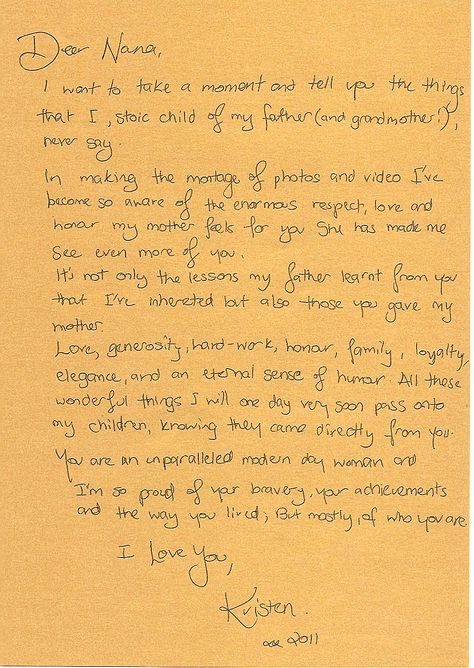 Dear Nana,
I want to take a moment and tell you the things
that I, stoic child of my father (and grandmother!),
never say.
In making the montage of photos and video I've
become so aware of the enormous respect, love and
honour my mother feels for you She has made me
see even more of you.
It's not only the lessons my father learnt from you
that I've inhereted but also those you gave my
mother.
Love, generosity, hard-work, honour, family, loyalty,
elegance, and an eternal sense of humor. All these
wonderful things I will one day very soon pass onto
my children, knowing they came directly from you.
You are an unparalleled modern day woman and
I'm so proud of your bravery, your achievements
and the way you lived; But mostly, of who you are
I Love You,
Kristen.
2011